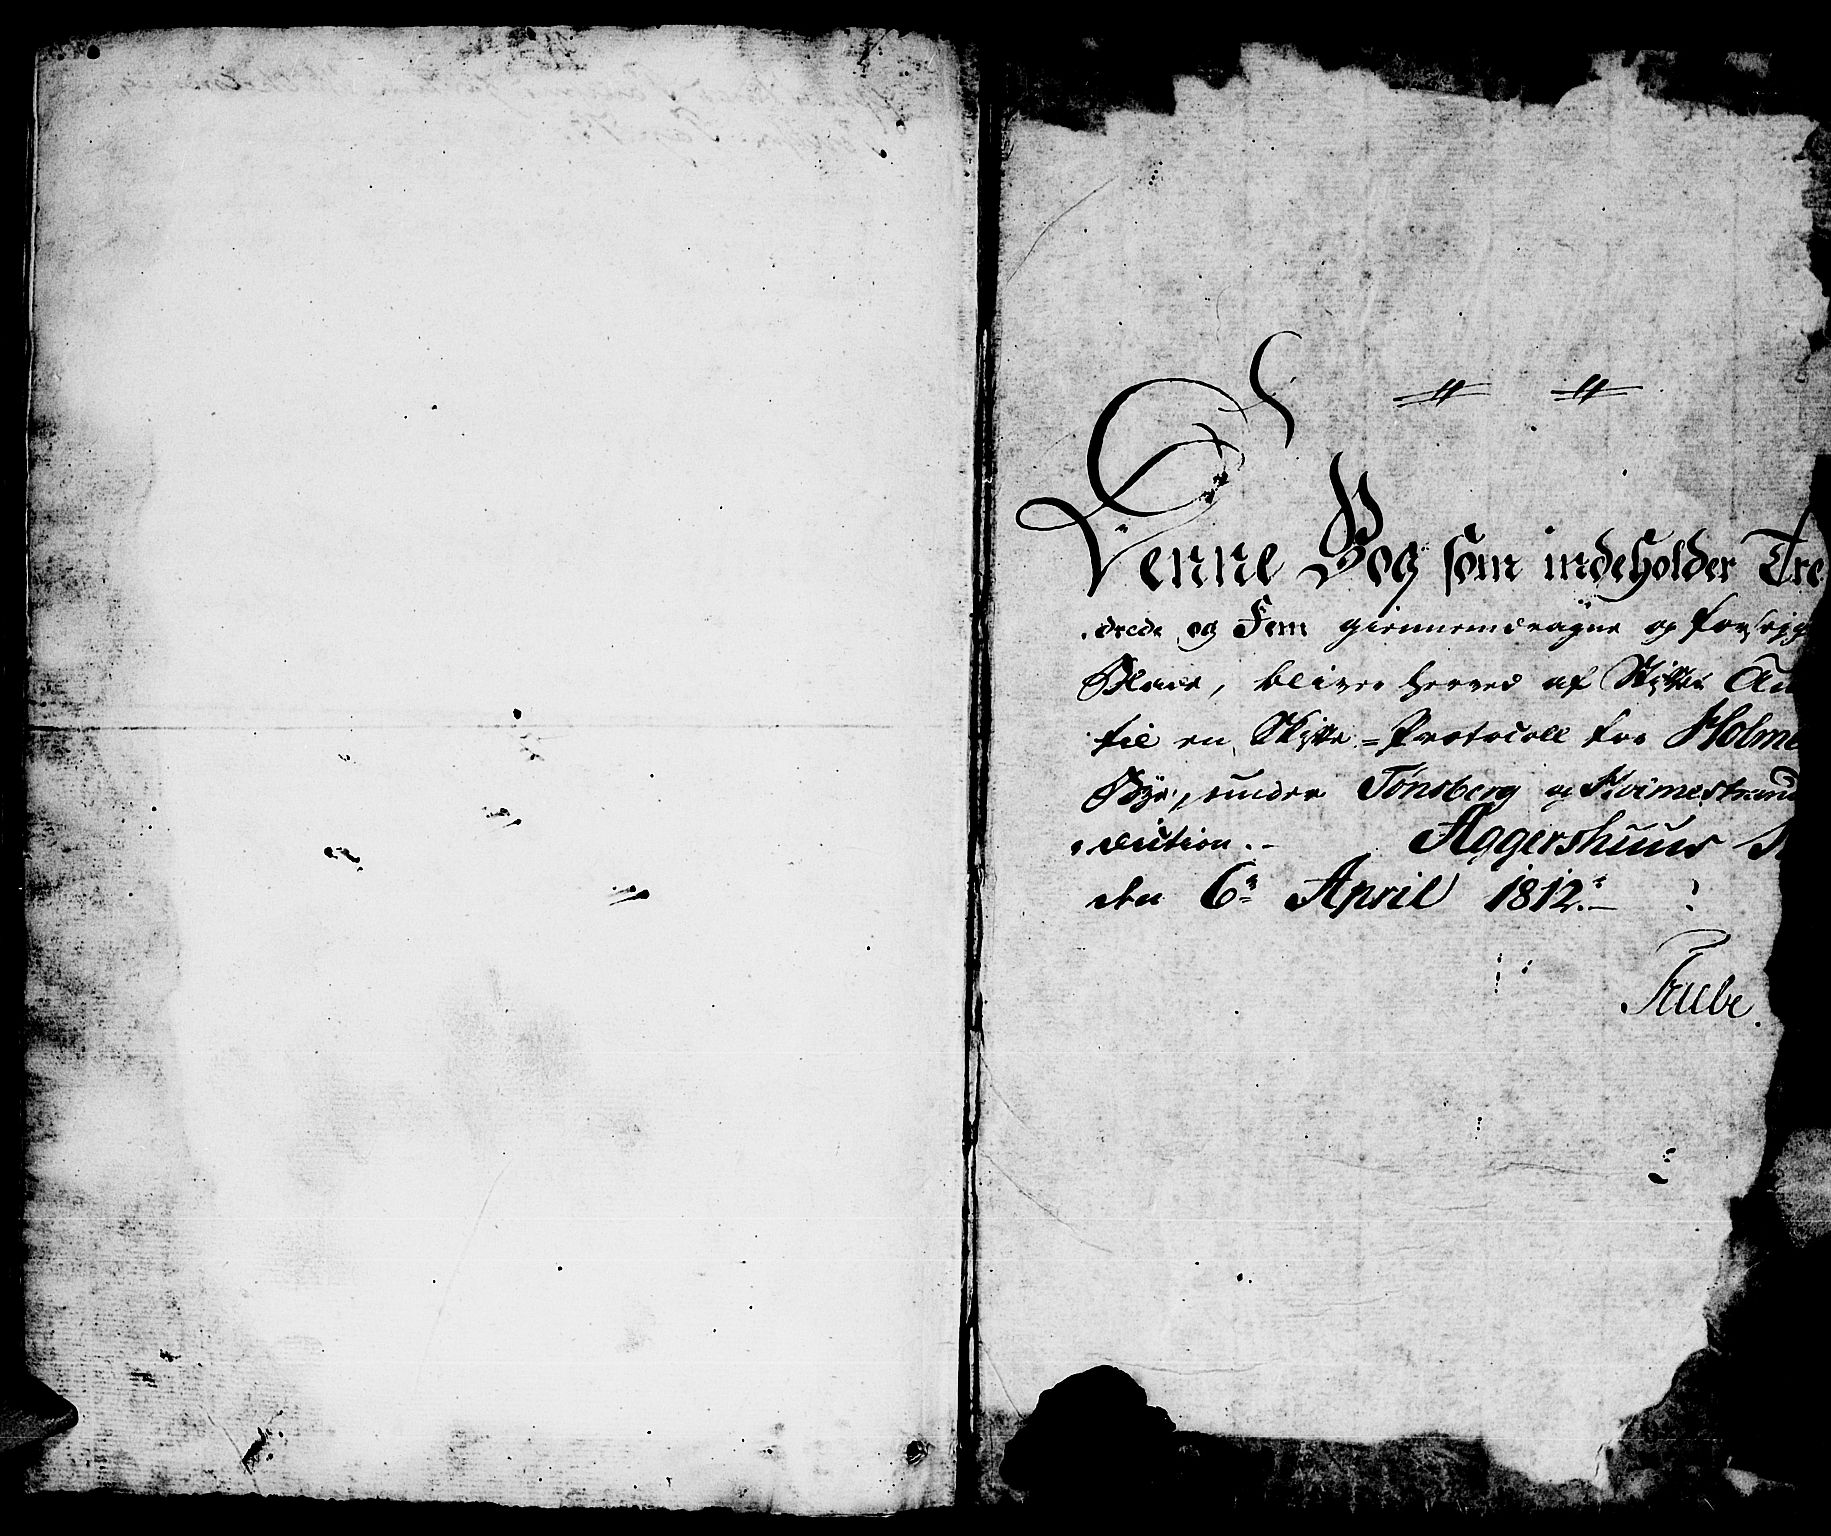 Denne Bog som indeholder Tre
drede og Fem giennemdragne og forseg
Blade, bliver herved af Skifte
til en Skifte-Protocoll for Holme
Bye, under Tønsberg og Holmestrand
diction.- Aggershuus
den 6te April 1812.-